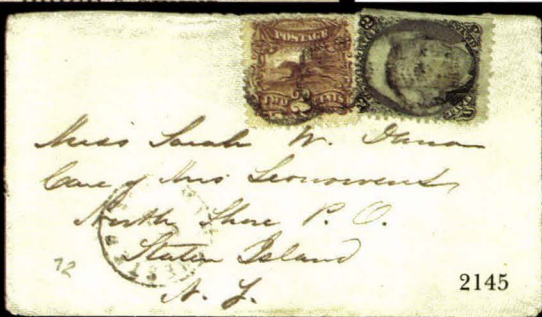 POSTAGE
Miss Sarah W.
Care of Mrs Leonowens
North Shore P. O.
Staten Island
N. Y.
72
2145